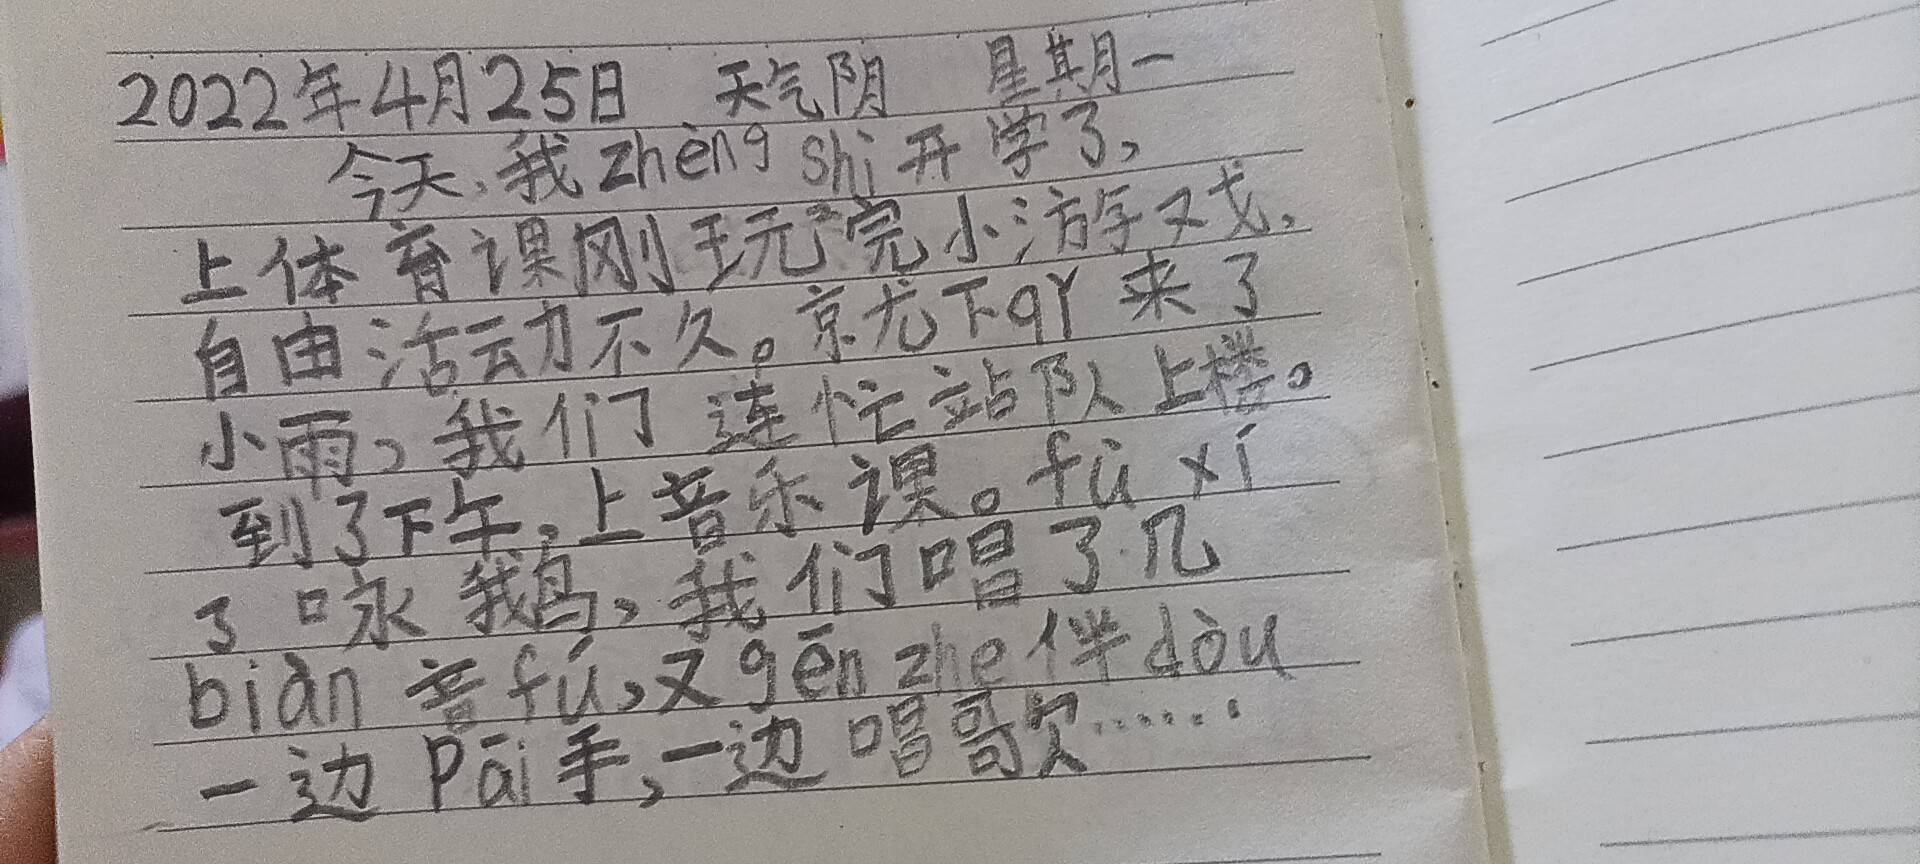 2022年4月25日 天气阴 星期一
今天,我zhèng shì开学了,
上体育课刚玩完小游戏,
自由活动不久。就下qǐ来了
小雨,我们连忙站队上楼。
到了下午,上音乐课。fù xí
了咏鹅,我们唱了几
biàn音fú,又gēn zhe伴dòu
一边Pāi手,一边唱歌……